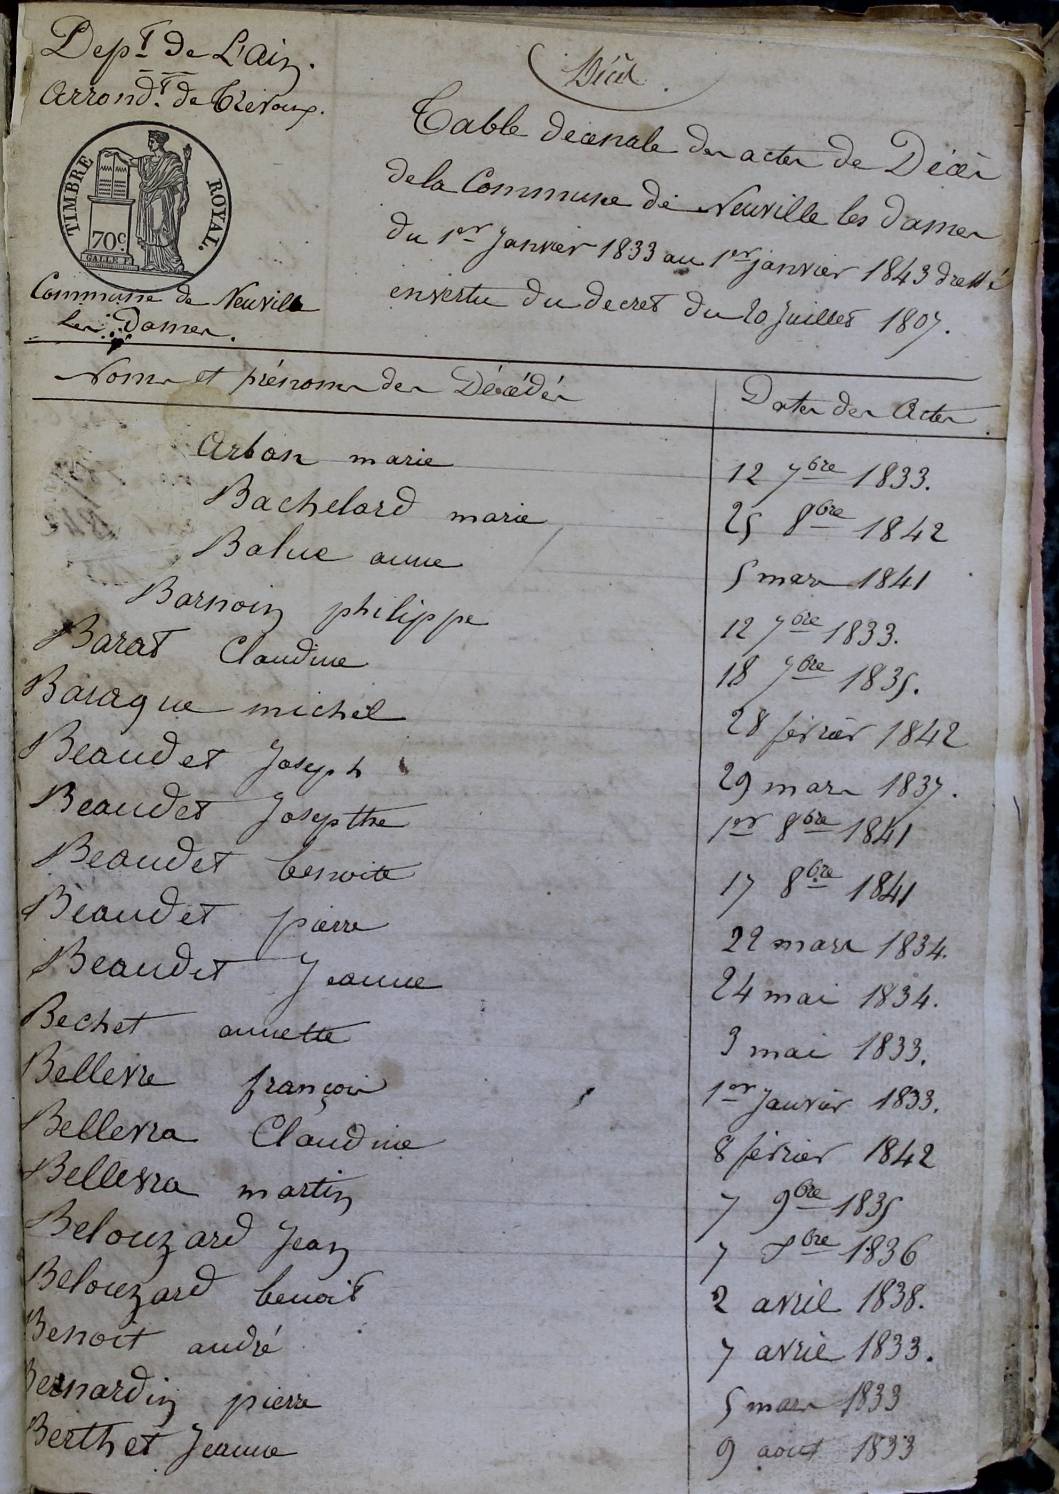 Dept de L'Ain.
Arrondt. de Trévoux.
TIMBRE ROYAL.
70c
Commune de Neuville
les Dames.
Décès.
Table décénale des actes de Décès
de la Commune de Neuville les Dames
du 1er Janvier 1833 au 1er janvier 1843 dressé
en vertu du decret du 20 juillet 1807.
Noms et prénoms des Décédés
Dates des Actes
Arban marie 12 7bre 1833.
Bachelard marie 25 8bre 1842
Balue anne 5 mars 1841
Barnoin philippe 12 7bre 1833.
Barat Claudine 18 7bre 1835.
Baraque michel 28 février 1842
Beaudet Joseph 29 mars 1837.
Beaudet Josepthe 1er 8bre 1841
Beaudet benoite 17 8bre 1841
Beaudet pierre 22 mars 1834.
Beaudet Jeanne 24 mai 1834.
Bechet annette 3 mai 1833.
Bellevre françois 1er Janvier 1833.
Bellevra Claudine 8 février 1842
Bellevra martin 7 9bre 1835
Belouzard Jean 7 8bre 1836
Belouzard benoit 2 avril 1838.
Benoit andré 7 avril 1833.
Bernardin pierre 5 mars 1833
Berthet Jeanne 9 aout 1833